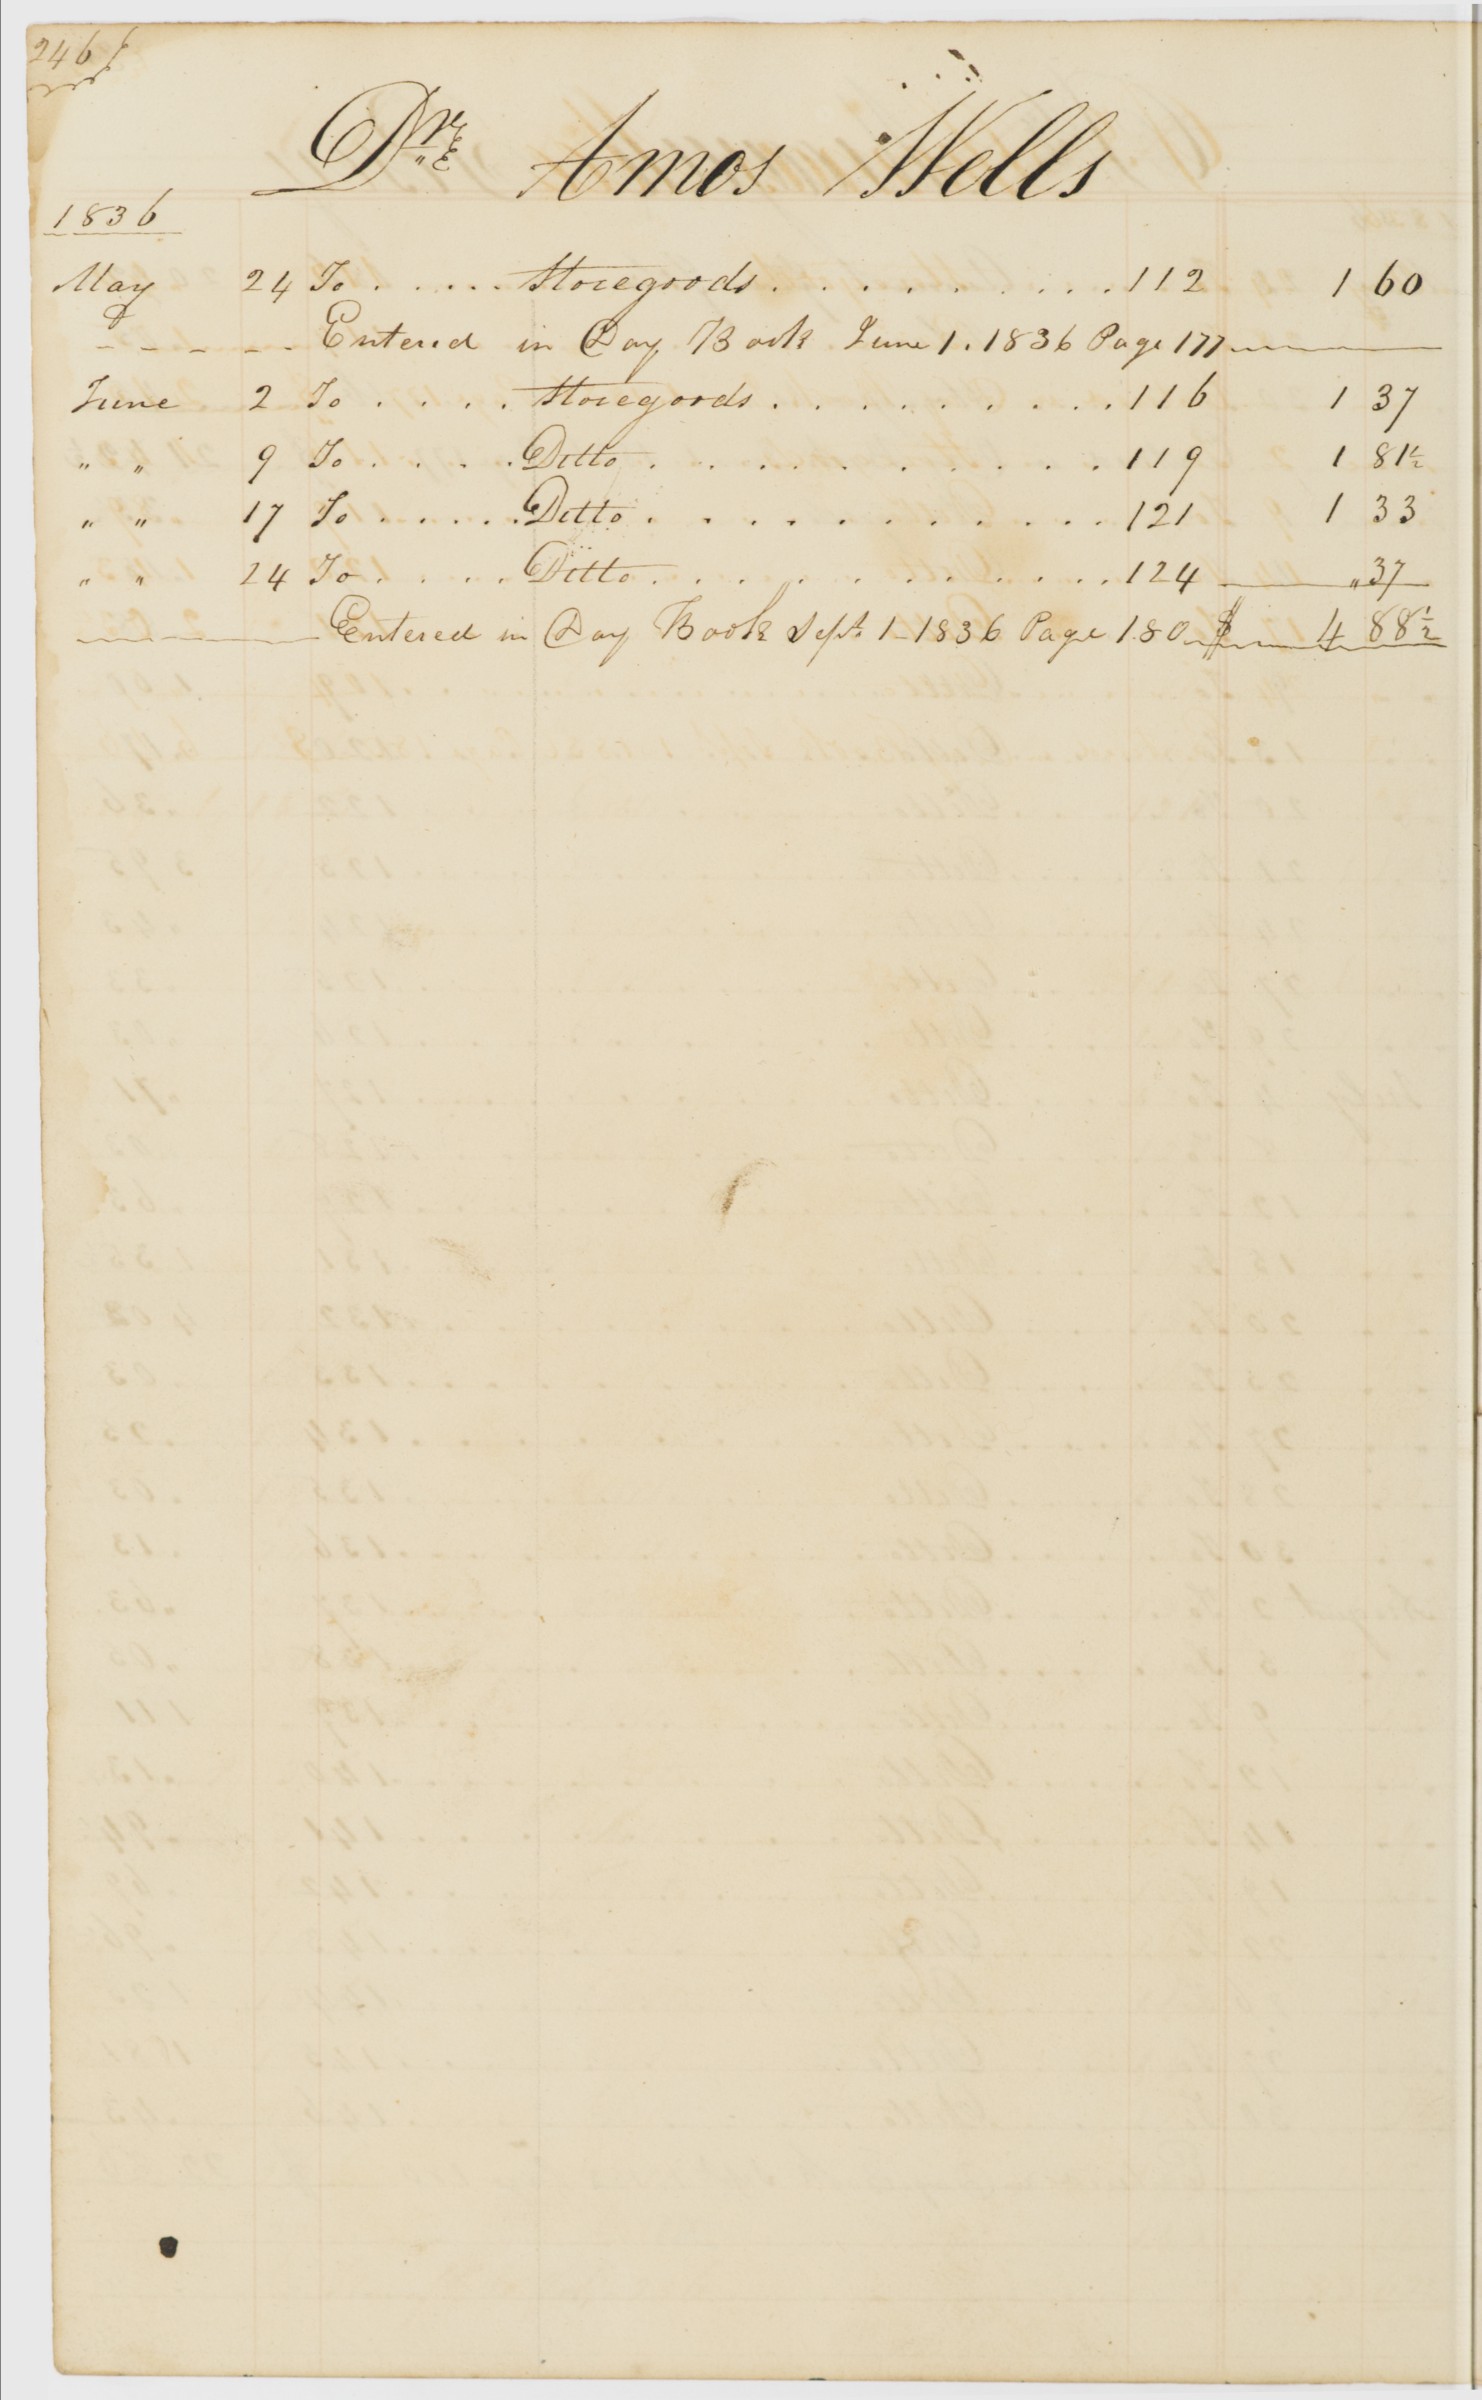 246
Dr. Amos Wells
1836
May 24 To . . . . . Storegoods . . . . . . . . . . 112 1 60
- - - - - Entered in Day Book June 1. 1836 Page 177
June 2 To . . . . Storegoods . . . . . . . . . 116 1 37
" " 9 To . . . . Ditto . . . . . . . . . . . 119 1 81½
" " 17 To . . . . . Ditto . . . . . . . . . . . 121 1 33
" " 24 To . . . . Ditto . . . . . . . . . . . . 124 " 37
Entered in Day Book Sept. 1 - 1836 Page 180 $ 4 88½